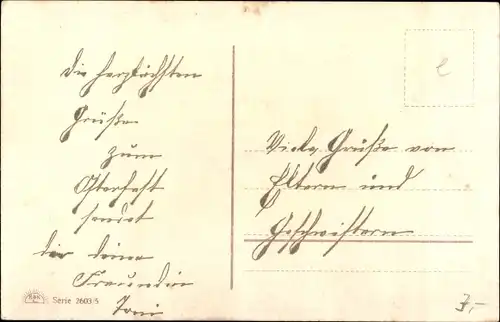 Die herzlichsten
Grüße
zum
Osterfest
sendet
dir deine
Freundin
Toni
Viele Grüße von
Eltern und
Geschwistern
Serie 2603/5
7,-